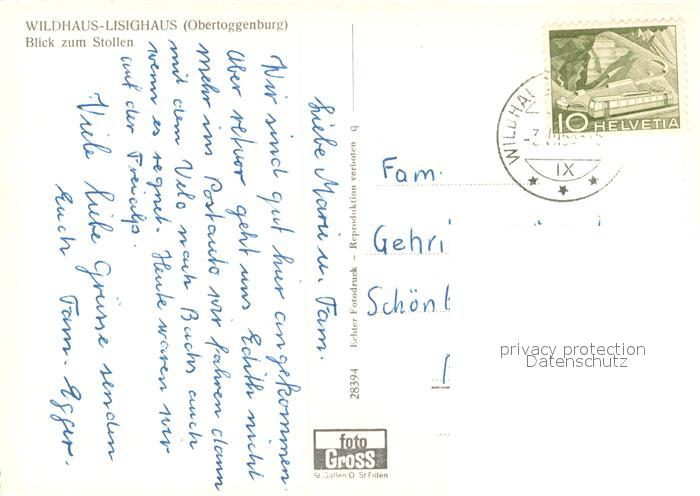 WILDHAUS-LISIGHAUS (Obertoggenburg)
Blick zum Stollen
Liebe Marie u. Fam.
Wir sind gut hier angekommen.
Aber retour geht uns Edith nicht
mehr ins Postauto wir fahren dann
mit dem Velo nach Buchs auch
wenn es regnet. Heute waren wir
auf der Freialp.
Viele liebe Grüsse senden
Euch Fam. Egger.
28394 Echter Fotodruck - Reproduktion verboten b
foto
Gross
St. Gallen O St. Fiden
10 HELVETIA
WILDHA
IX
Fam.
Gehri
Schön
privacy protection
Datenschutz